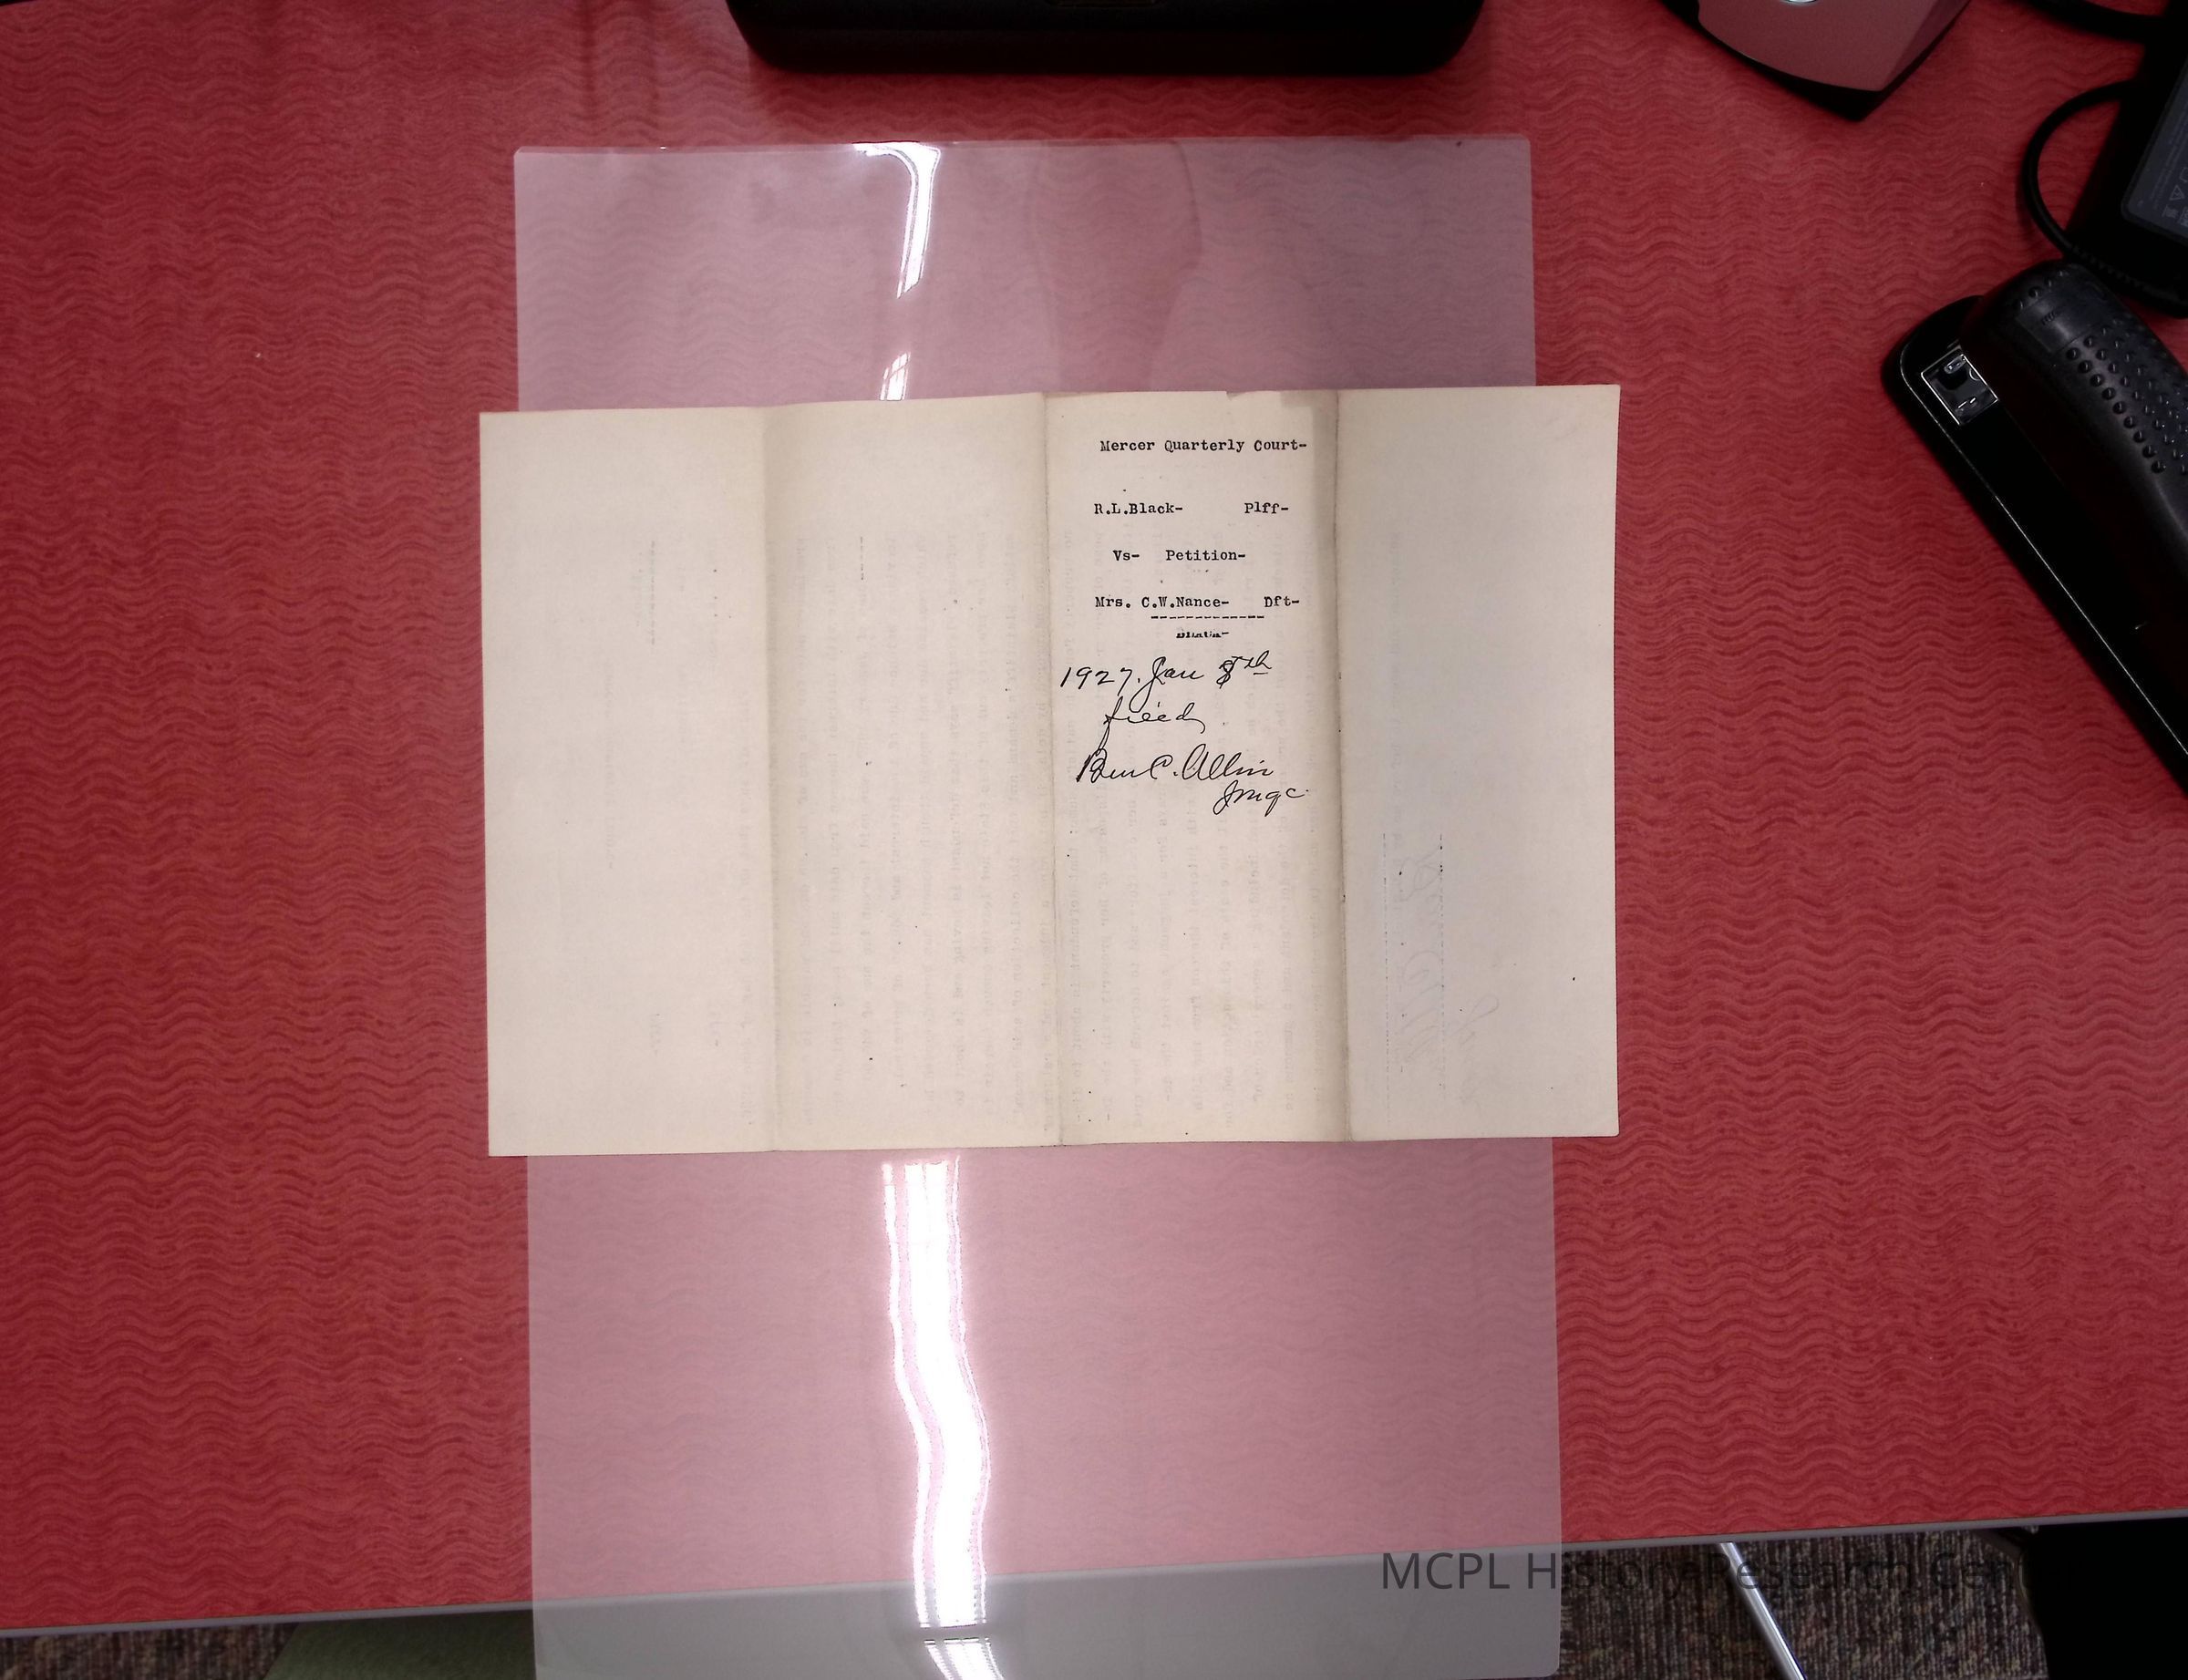 Mercer Quarterly Court-
R.L.Black- Plff-
Vs- Petition-
Mrs. C.W.Nance- Dft-
------------
1927. Jan 8th
filed
Ben C. Allin
JMQC
MCPL History Research Cen